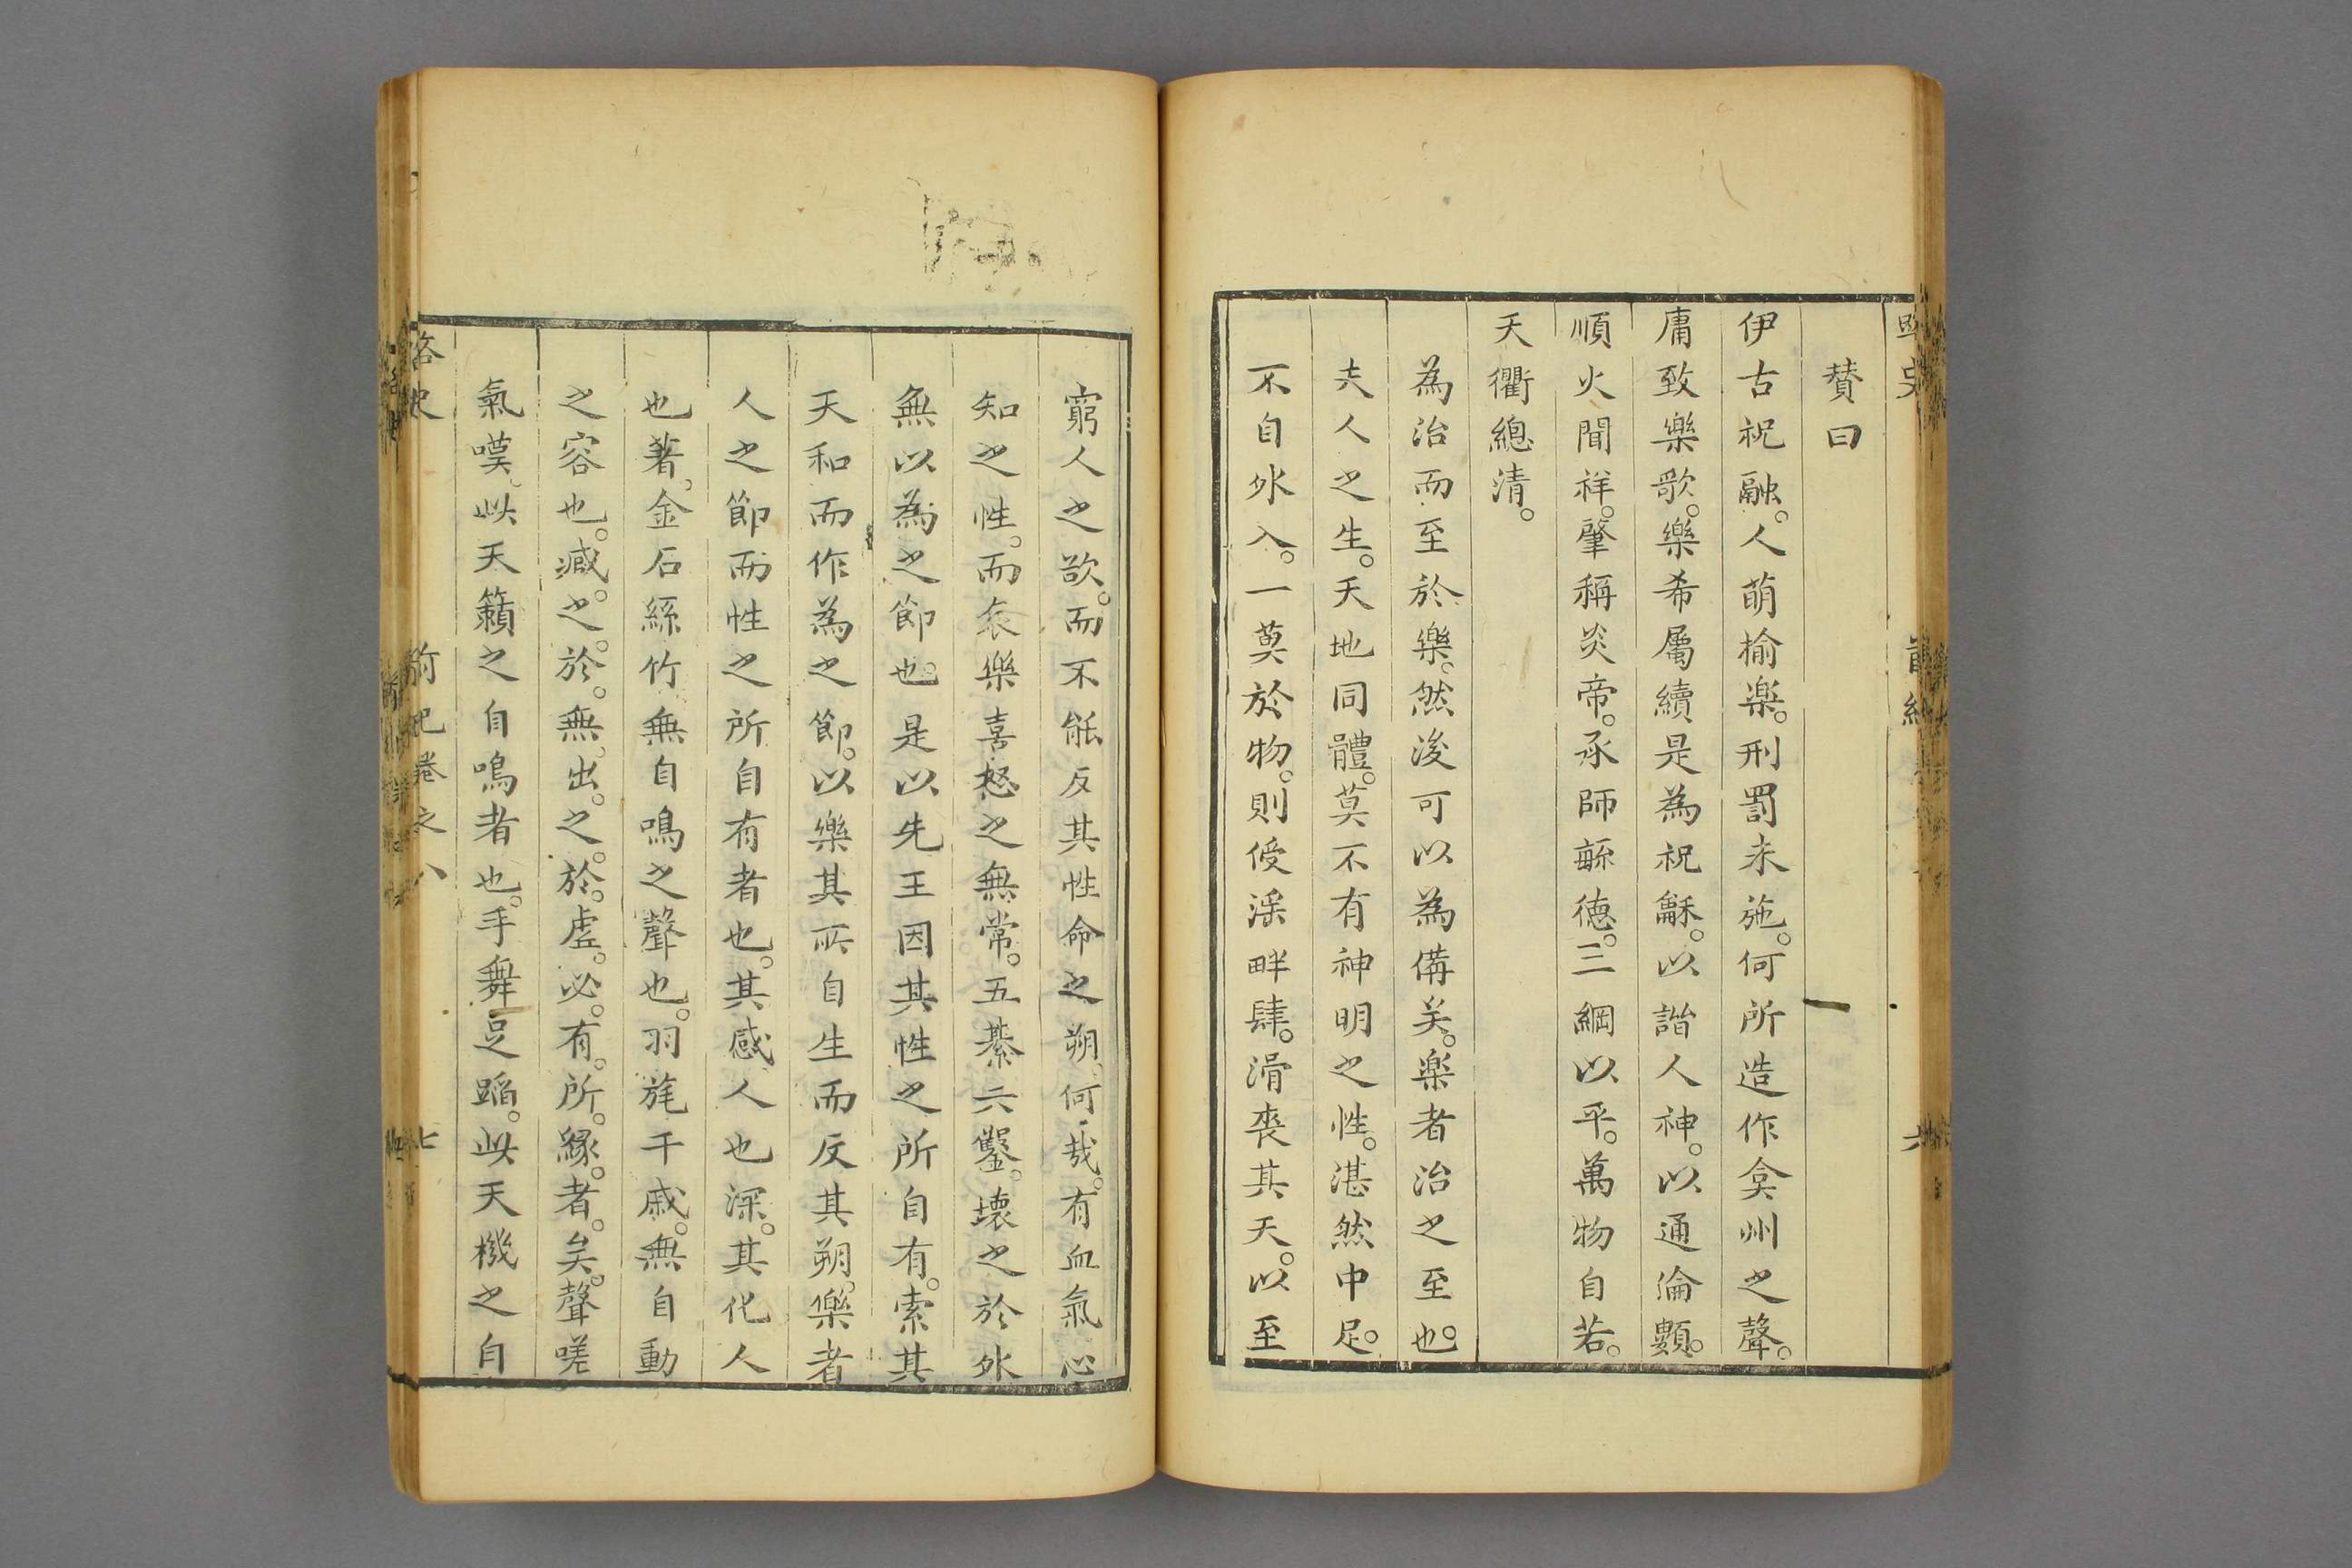 贊曰
伊古祝融。人萌揄樂。刑罰未施。何所造作弇州之聲。
庸致樂歌。樂希屬續是為祝龢。以諧人神。以通倫類。
順火聞祥。肇稱炎帝。承師緜德。三綱以平。萬物自若。
天衢總清。
為治而至於樂。然後可以為備矣。樂者治之至也。
夫人之生。天地同體。莫不有神明之性。湛然中足。
不自外入。一莫於物。則侵淫畔肆。滑喪其天。以至
窮人之欲。而不能反其性命之朔。何哉。有血氣心
知之性。而哀樂喜怒之無常。五綦六鑿。壞之於外
無以為之節也。是以先王因其性之所自有。索其
天和而作為之節。以樂其所自生而反其朔。樂者
人之節而性之所自有者也。其感人也深。其化人
也著。金石絲竹無自鳴之聲也。羽旄干戚。無自動
之容也。臧。之。於。無。出。之。於。虛。必。有。所。緣。者。矣。聲嗟
氣嘆。此天籟之自鳴者也。手舞足蹈。此天機之自
路史 前紀卷之八 七